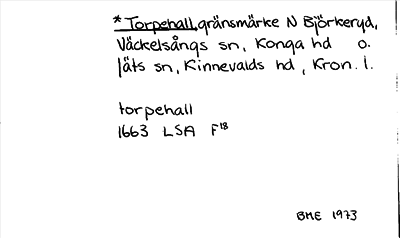 * Torpehall, gränsmärke N Björkeryd,
Väckelsångs sn, Konga hd o.
Jäts sn, Kinnevalds hd, Kron. l.
torpehall
1663 LSA F18
BME 1973